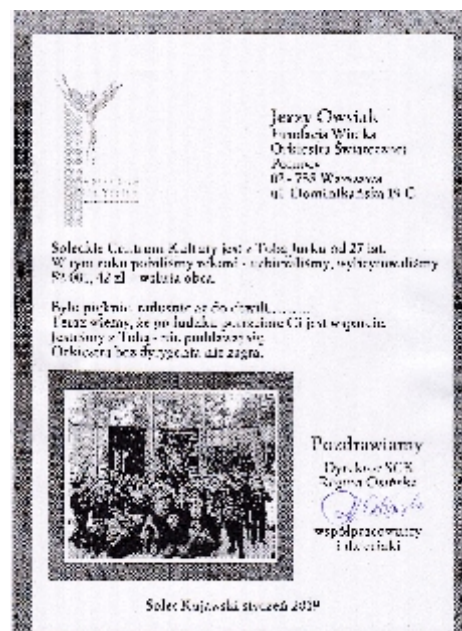 Jerzy Owsiak
Fundacja Wielka
Orkiestra Świątecznej
Pomocy
02 - 738 Warszawa
ul. Dominikańska 19 C
Soleckie Centrum Kultury jest z Tobą Jurku od 27 lat.
W tym roku pobiliśmy rekord - uzbieraliśmy, wylicytowaliśmy
42 zł - waluta obca.
Było pięknie, radośnie aż do chwili
Teraz wiemy, że po ludzku potrzebne Ci jest wsparcie.
Jesteśmy z Tobą - nie poddawaj się.
Orkiestra bez dyrygenta nie zagra.
Pozdrawiamy
Dyrektor SCK
współpracownicy
i dzieciaki
Solec Kujawski styczeń 2019